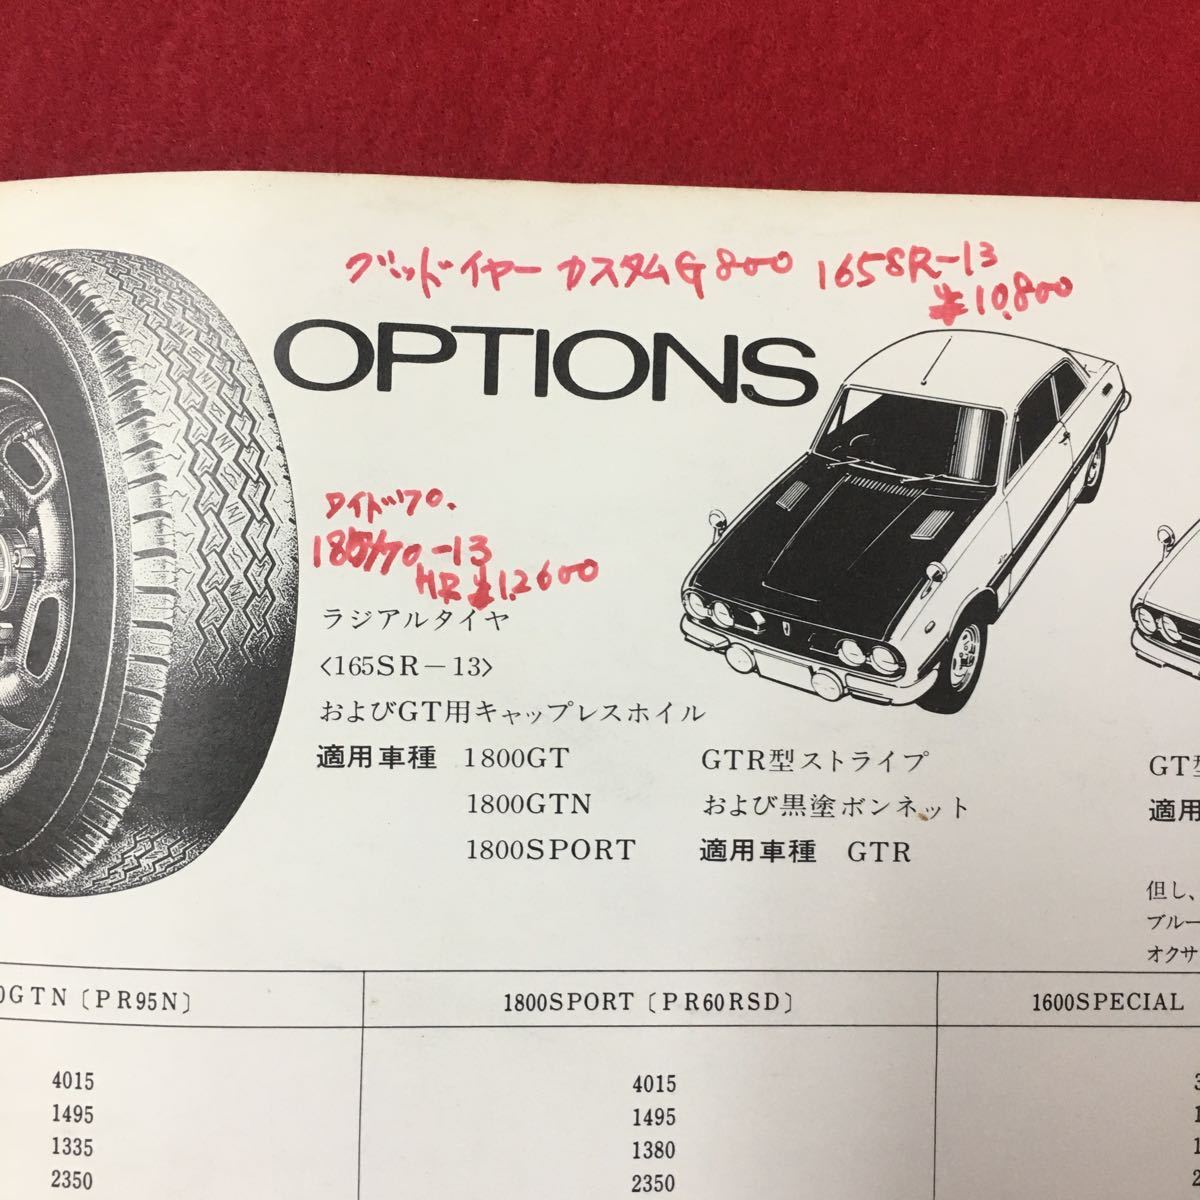 グッドイヤー カスタムG800 165SR-13
¥10,800
OPTIONS
ワイド70.
185/70-13
HR ¥12,600
ラジアルタイヤ
〈165SR-13〉
およびGT用キャップレスホイル
適用車種 1800GT
1800GTN
1800SPORT
GTR型ストライプ
および黒塗ボンネット
適用車種 GTR
GT型
適用
但し、
ブルー
オクサ
0GTN〔PR95N〕 1800SPORT〔PR60RSD〕 1600SPECIAL
4015 4015 3
1495 1495 1
1335 1380 1
2350 2350 2